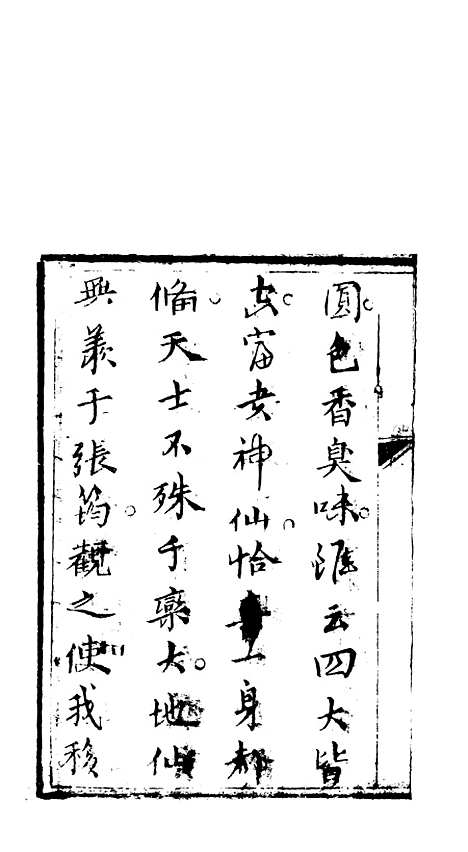 圓色香臭味雖云四大皆
空富貴神仙恰一身都
備天士不殊于藥大地仙
興羨于張筠觀之使我移